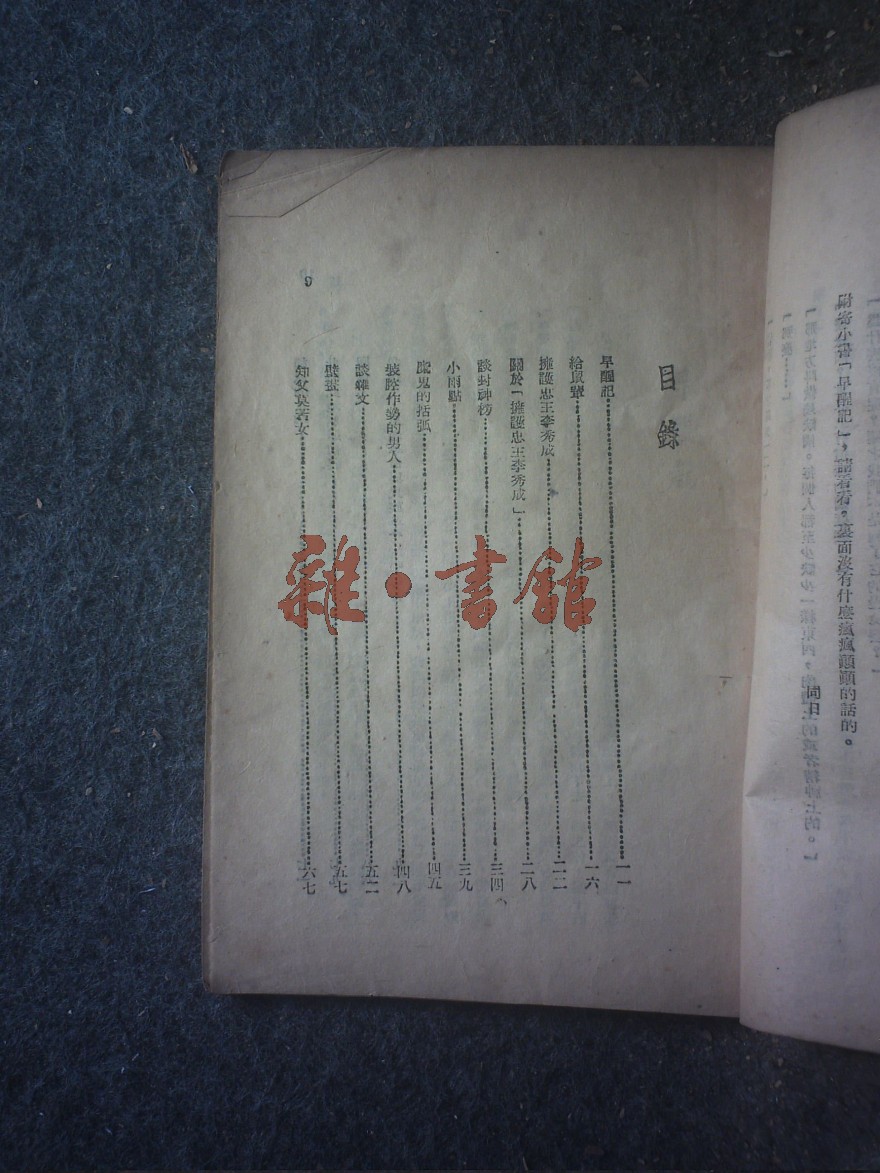 附寄小書「早醒記」，請看看。裏面沒有什麼瘋瘋顛顛的話的。
同日
目錄
早醒記……一一
給鼠輩……一六
擁護忠王李秀成……二二
關於「擁護忠王李秀成」……二八
談封神榜……三四
小雨點……三九
魔鬼的括弧……四五
裝腔作勢的男人……四八
談雜文……五二
壁虱……五七
知父莫若女……六七
9
雜·書館